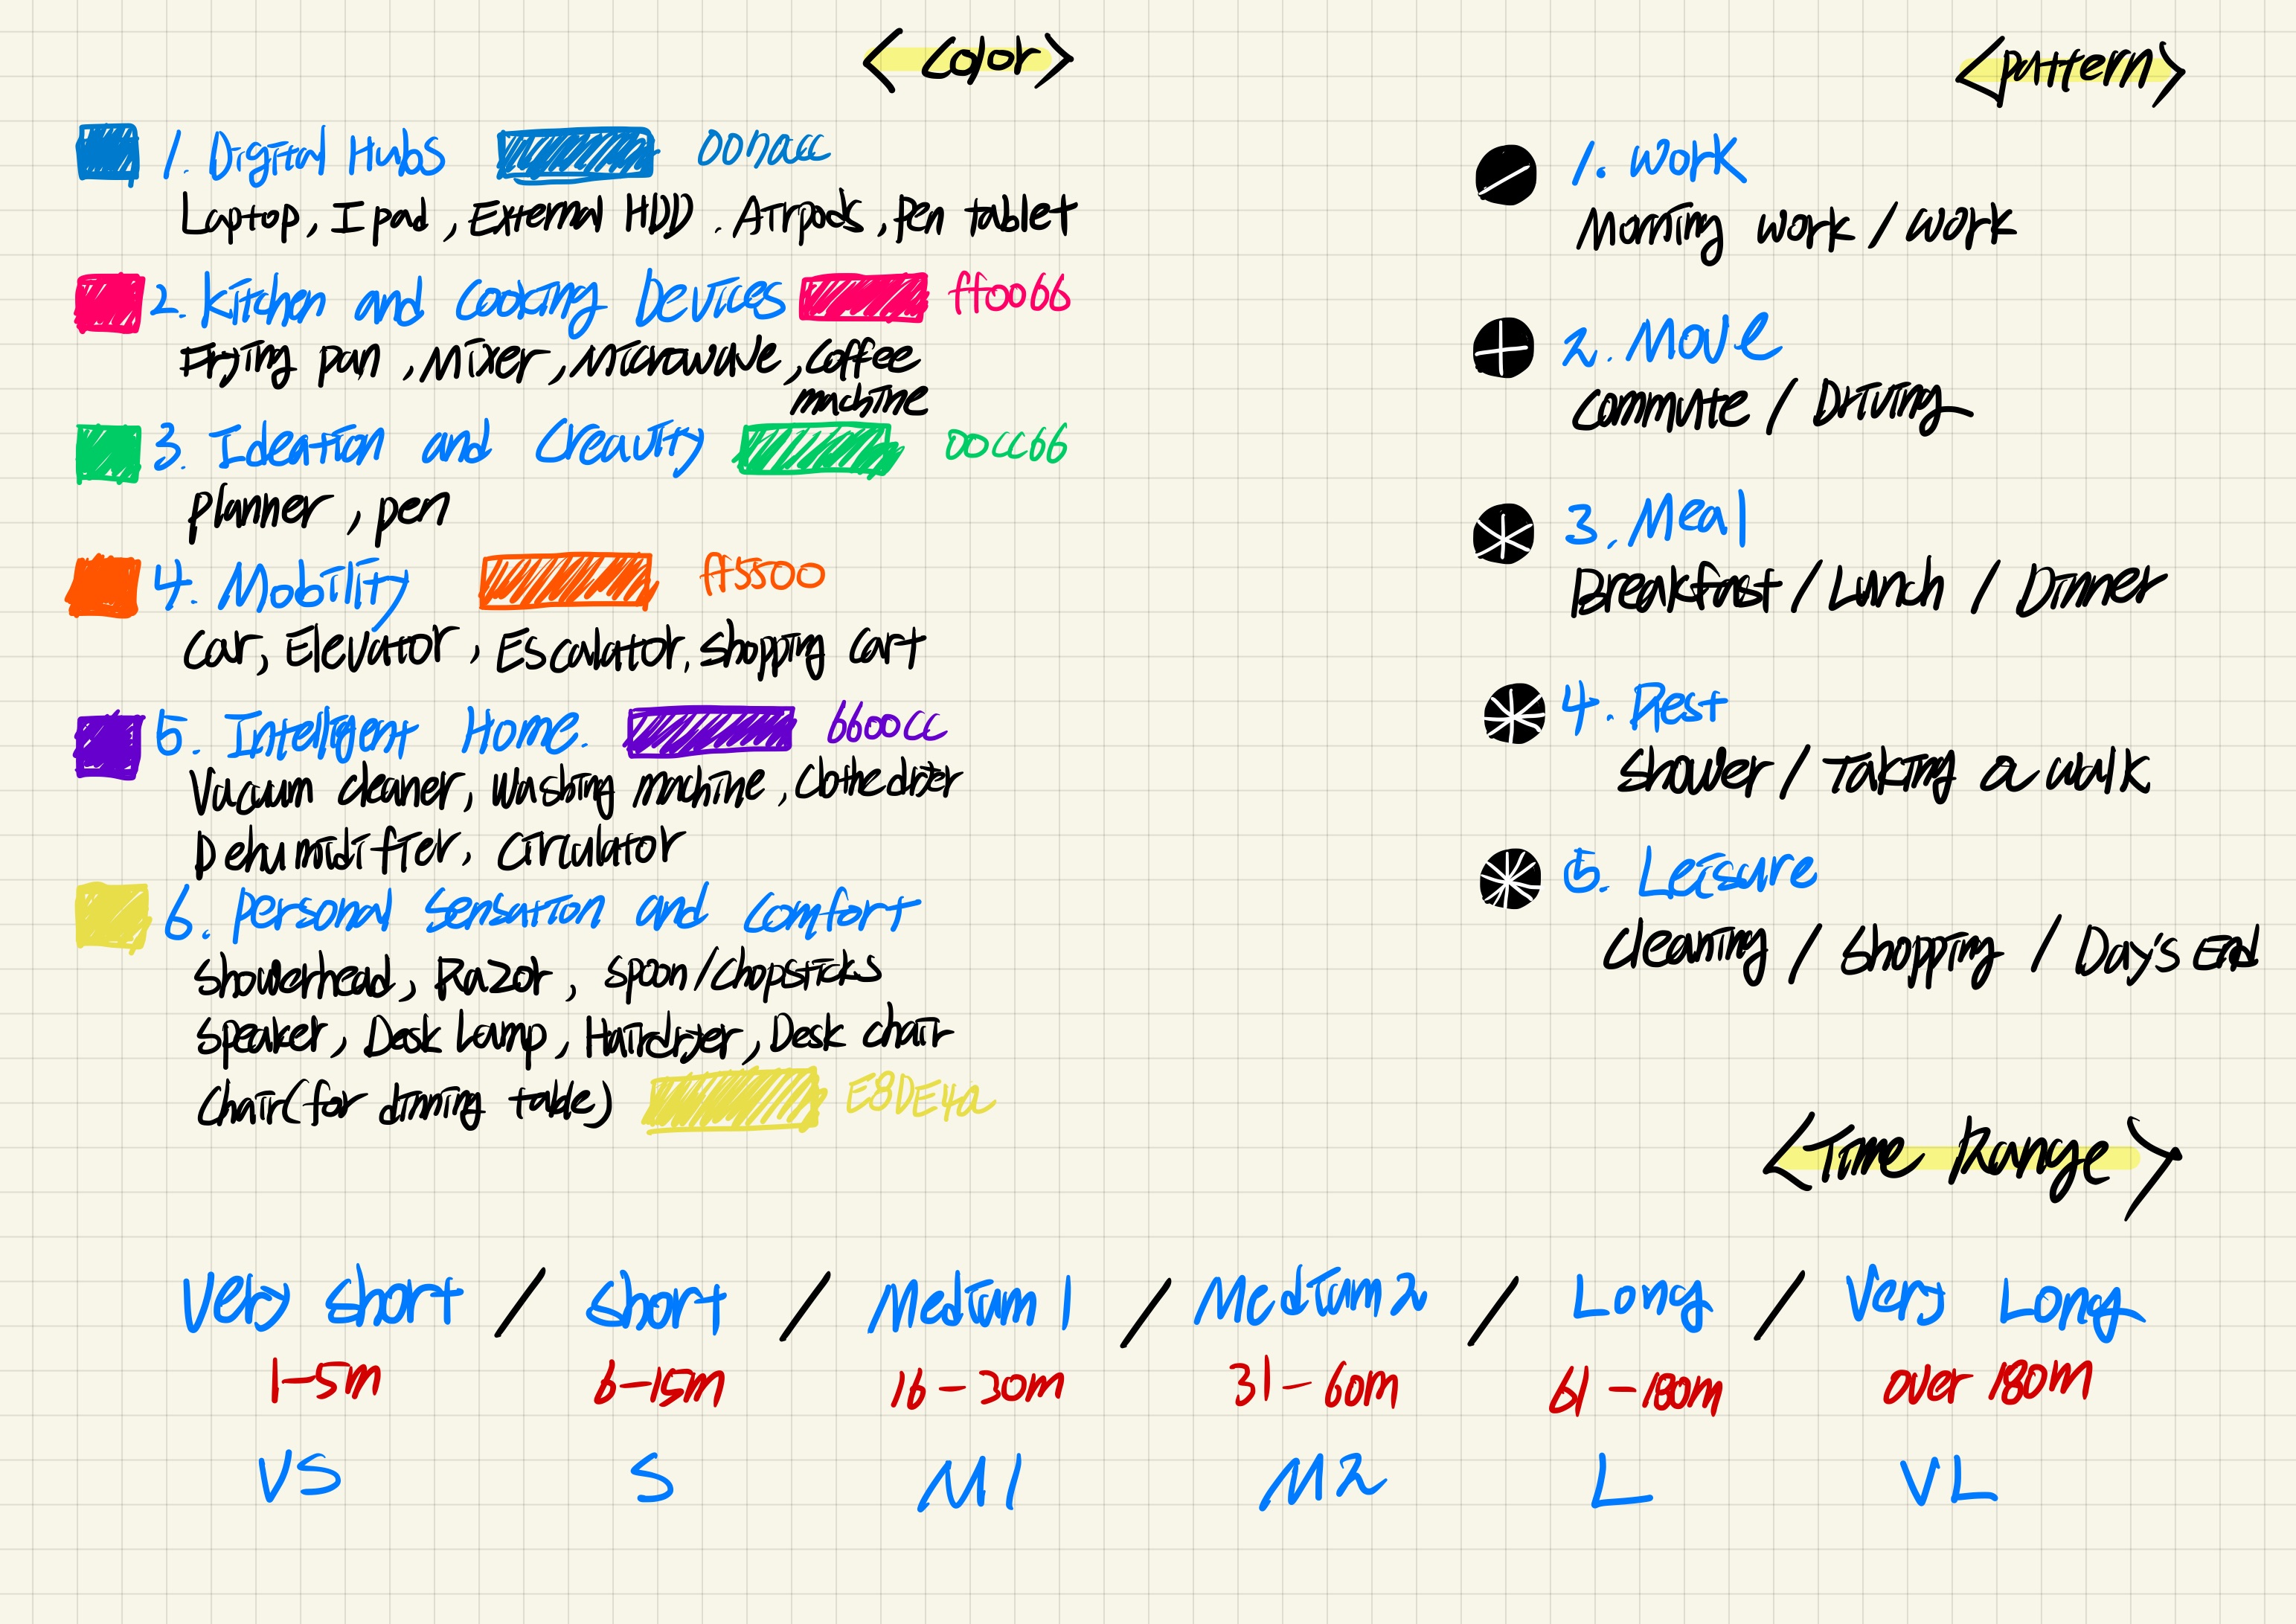 <Color>
1. Digital Hubs 007acc
Laptop, Ipad, External HDD. Airpods, Pen tablet
2. Kitchen and Cooking Devices ff0066
Frying pan, Mixer, Microwave, Coffee
machine
3. Ideation and Creavity 00cc66
Planner, pen
4. Mobility ff5500
Car, Elevator, Escalator, Shopping cart
5. Intelligent Home. 6600cc
Vacuum cleaner, Washing machine, Clothe drier
Dehumidifier, Circulator
6. Personal Sensation and Comfort
Showerhead, Razor, Spoon/Chopsticks
Speaker, Desk Lamp, Hairdryer, Desk chair
Chair(for dinning table) E8DE4a
<pattern>
1. Work
Morning work / Work
2. Move
Commute / Driving
3. Meal
Breakfast / Lunch / Dinner
4. Rest
Shower / Taking a walk
5. Leisure
Cleaning / Shopping / Day's End
<Time Range>
Very short / Short / Medium 1 / Medium 2 / Long / Very Long
1-5m 6-15m 16-30m 31-60m 61-180m over 180m
VS S M1 M2 L VL